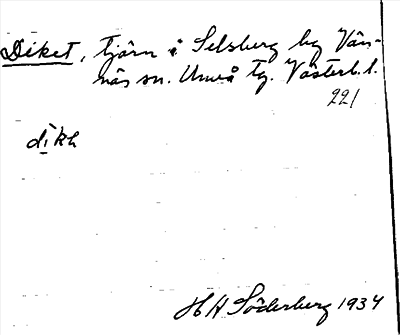 Diket, tjärn i Selsberg by Vän-
näs sn. Umeå tg. Västerb. l.
221
dikh
H H Söderberg 1934